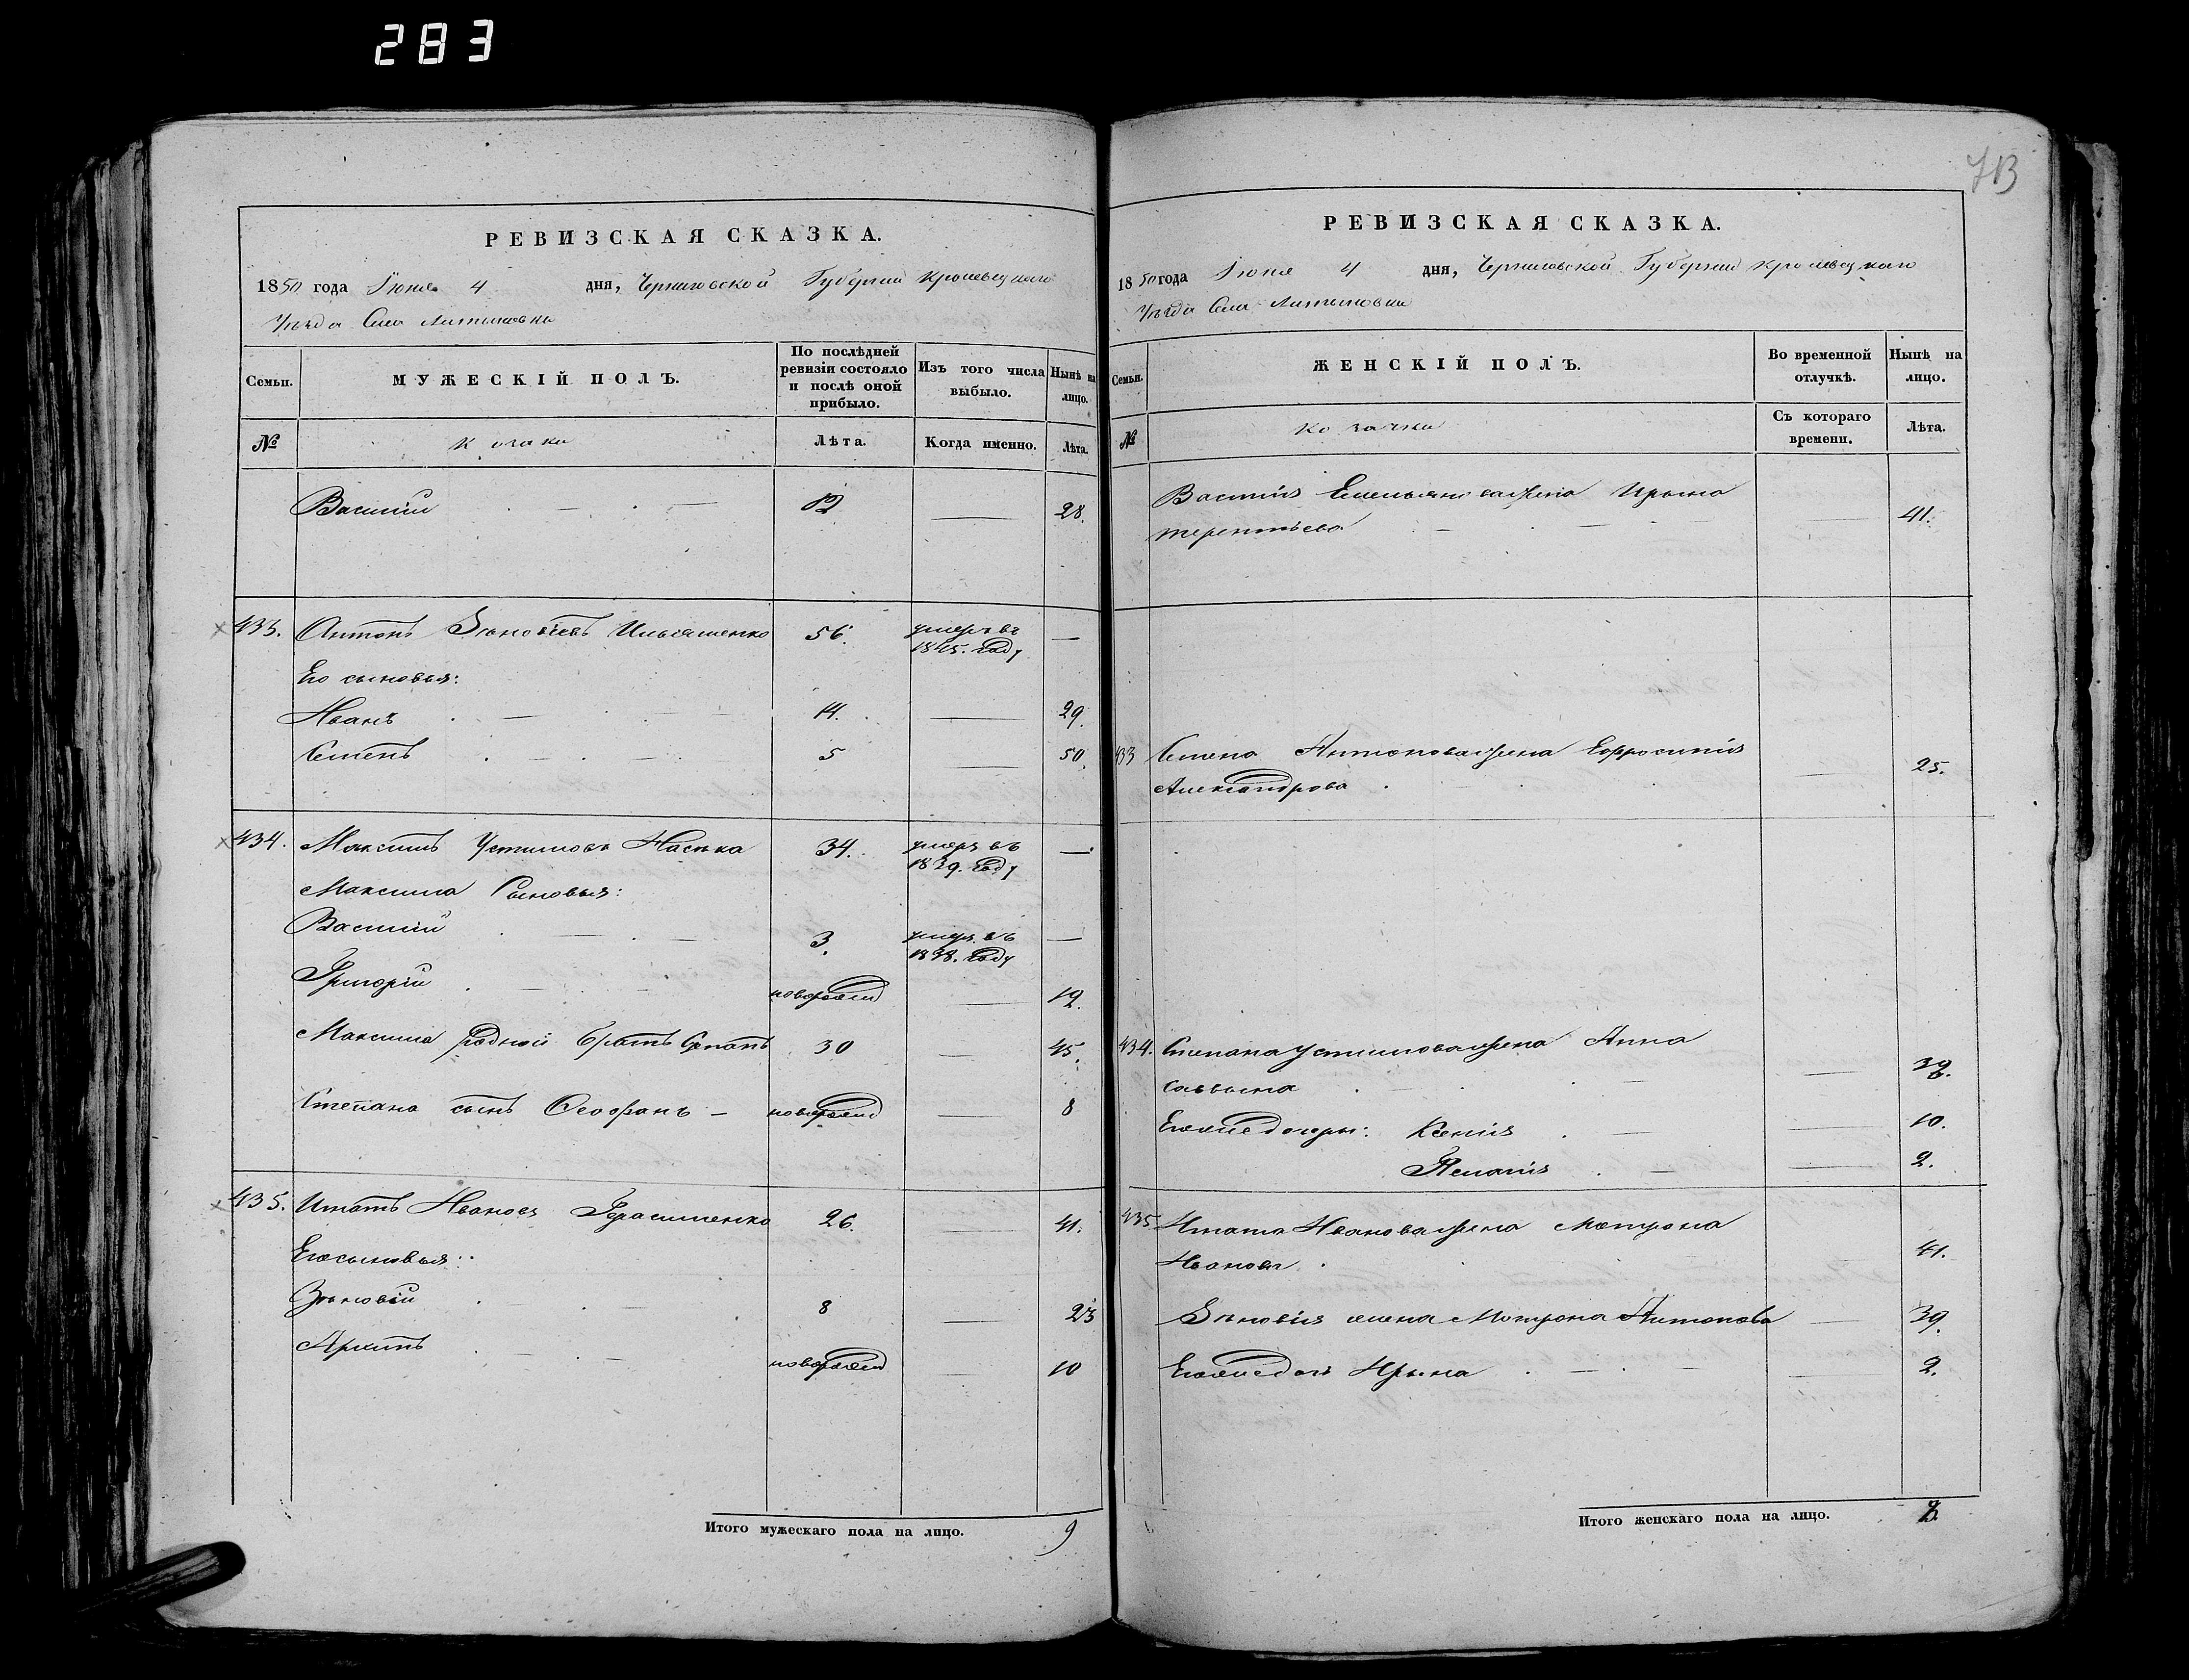 283
713
РЕВИЗСКАЯ СКАЗКА.
1850 года Июня 4 дня, Черниговской Губернии Кролевецкаго
Уѣзда Села Литвиновки
Семьи.
МУЖЕСКІЙ ПОЛЪ.
По послѣдней ревизіи состояло и послѣ оной прибыло.
Изъ того числа выбыло.
Нынѣ на лицо.
№
Козаки
Лѣта.
Когда именно.
Лѣта.
Василій 12 28.
433. Антонъ Зѣновіевъ Ильяшенко 56. умеръ въ 1845. году
Его сыновья:
Иванъ 14. 29.
Семенъ 5 50.
434. Максимъ Устимовъ 34. умеръ въ 1839. году
Максима Сыновья:
Василій 3. умеръ въ 1838. году
Григорій новорожд 12.
Максима родной братъ Степанъ 30 45.
Степана сынъ Феофанъ новорожд 8
435. Игнатъ Ивановъ Герасименко 26. 41.
Его сыновья:
Зѣновій 8 23
Архипъ новорожд 10
Итого мужескаго пола на лицо. 9
РЕВИЗСКАЯ СКАЗКА.
1850 года Июня 4 дня, Черниговской Губерніи Кролевецкаго
Уѣзда Села Литвиновки
Семьи.
ЖЕНСКІЙ ПОЛЪ.
Во временной отлучкѣ.
Нынѣ на лицо.
№
Козачки
Съ котораго времени.
Лѣта.
Василія Емельянова жена Ирына
Терентьева 41.
433 Семена Антонова жена Ефросинія
Александрова 25.
434. Степана Устимова жена Анна
Саввына
Его же дочери: Ксенія 10.
2.
435 Игната Иванова жена Мотрона
Иванова 41.
Зѣновія жена Мотрона Антонова
Его же дочь Ирына 2.
Итого женскаго пола на лицо.